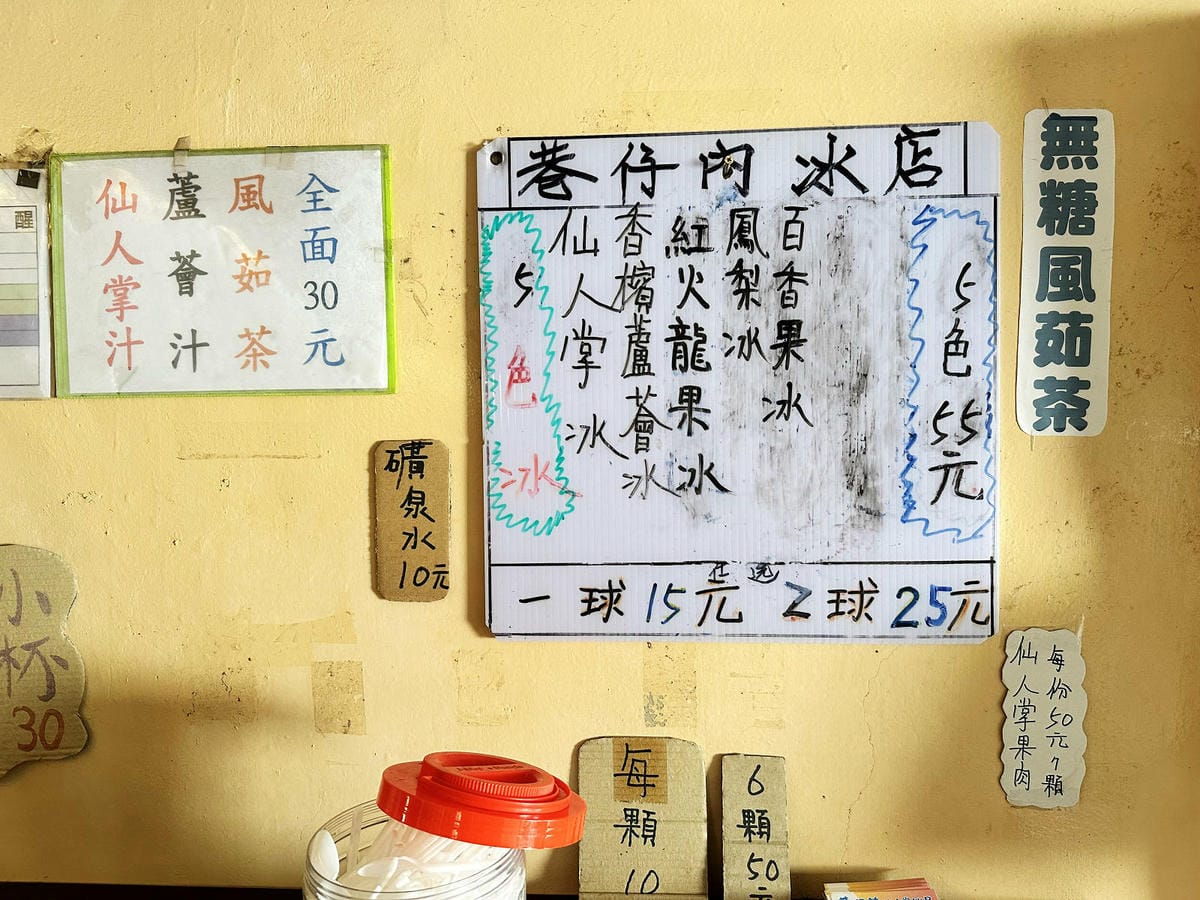 醒
全面30元
風茹茶
蘆薈汁
仙人掌汁
巷仔內冰店
5色55元
百香果冰
鳳梨冰
紅火龍果冰
香檳蘆薈冰
仙人掌冰
5色冰
任選
一球15元 2球25元
無糖風茹茶
礦泉水10元
小杯30
每份50元7顆
仙人掌果肉
每顆10
6顆50元